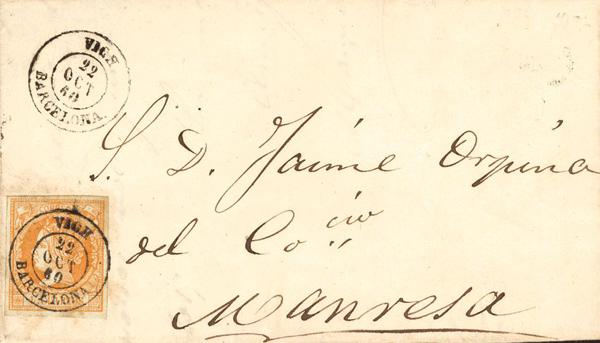 VICH
22
OCT
60
BARCELONA.
S. D. Jaime Orpina
del Co cio
Manresa
VICH
22
OCT
60
BARCELONA